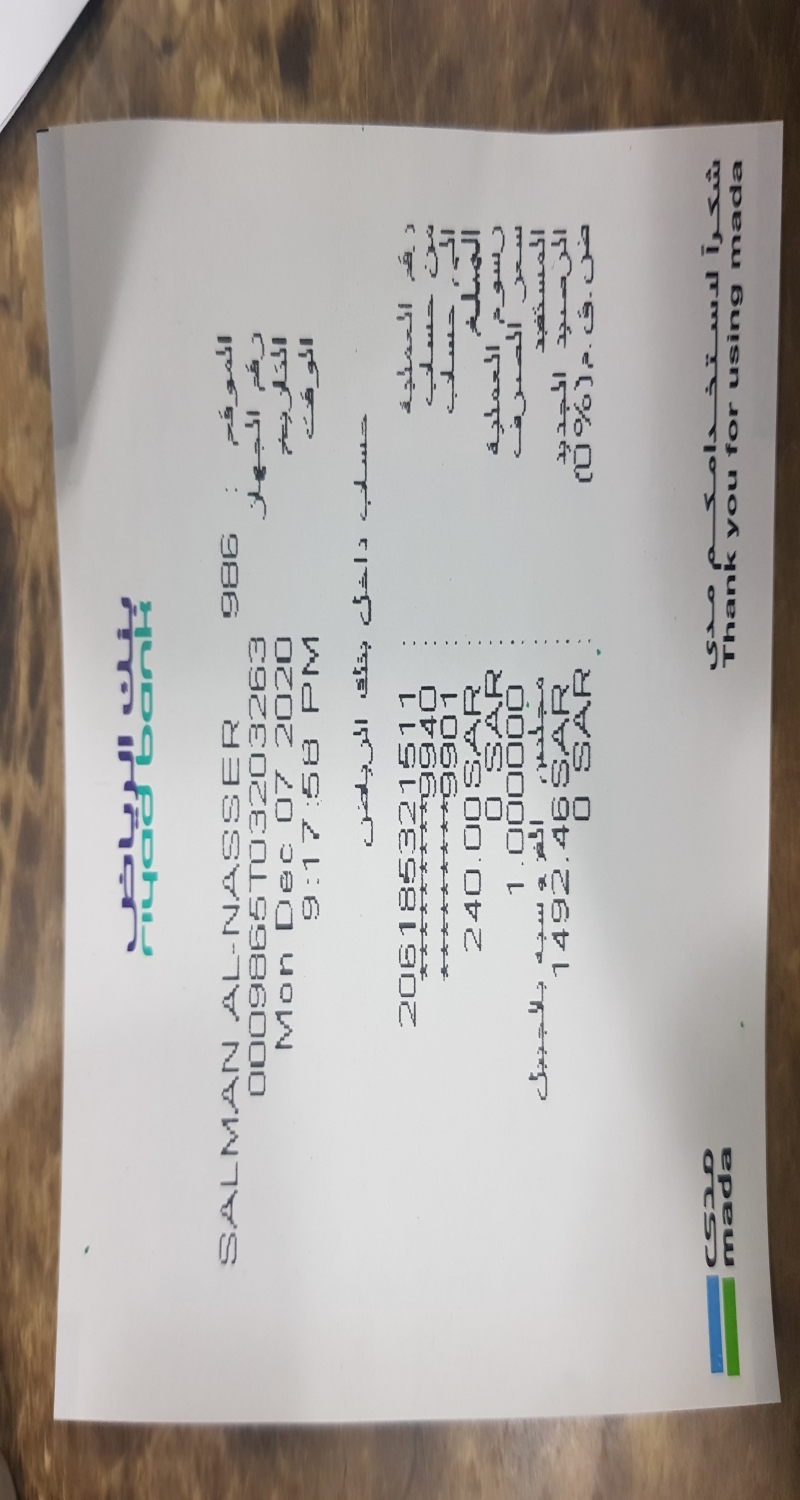 بنك الرياض
riyad bank
الموقع : 986 SALMAN AL-NASSER
رقم الجهاز 0009865T03203263
التاريخ Mon Dec 07 2020
الوقت 9:17:58 PM
حساب داخل بنك الرياض
رقم العملية : 206185321511
من حساب : **********9940
الى حساب : **********9901
المبلغ : 240.00SAR
رسوم العملية : 0 SAR
سعر الصرف : 1.000000
المستفيد : الفروسية بالجبيل
الرصيد الجديد : 1492.46SAR
ض.ق.م(0%) : 0 SAR
شكراً لاستخدامكم مدى
Thank you for using mada
مدى
mada